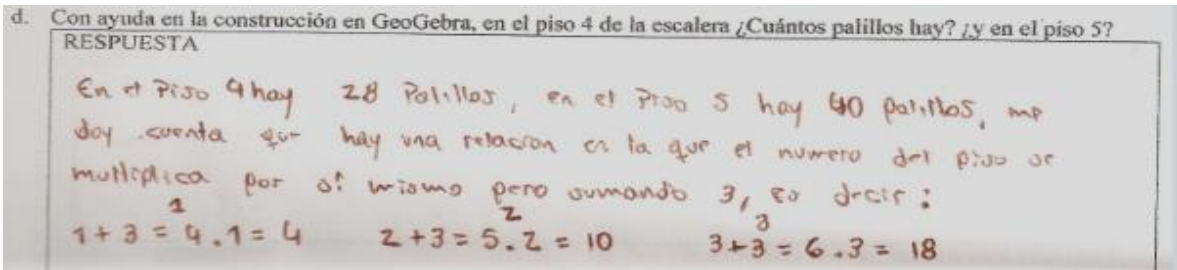 d. Con ayuda en la construcción en GeoGebra, en el piso 4 de la escalera ¿Cuántos palillos hay? ¿y en el piso 5?
RESPUESTA
En el Piso 4 hay 28 Palillos, en el Piso 5 hay 40 palillos, me
doy cuenta que hay una relacion en la que el numero del piso se
multiplica por si mismo pero sumando 3, es decir:
1 2 3
1+3=4.1=4 2+3=5.2=10 3+3=6.3=18